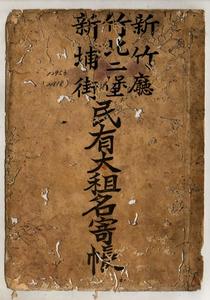 新竹廳
竹北二堡
新埔街
民有大租名寄帳